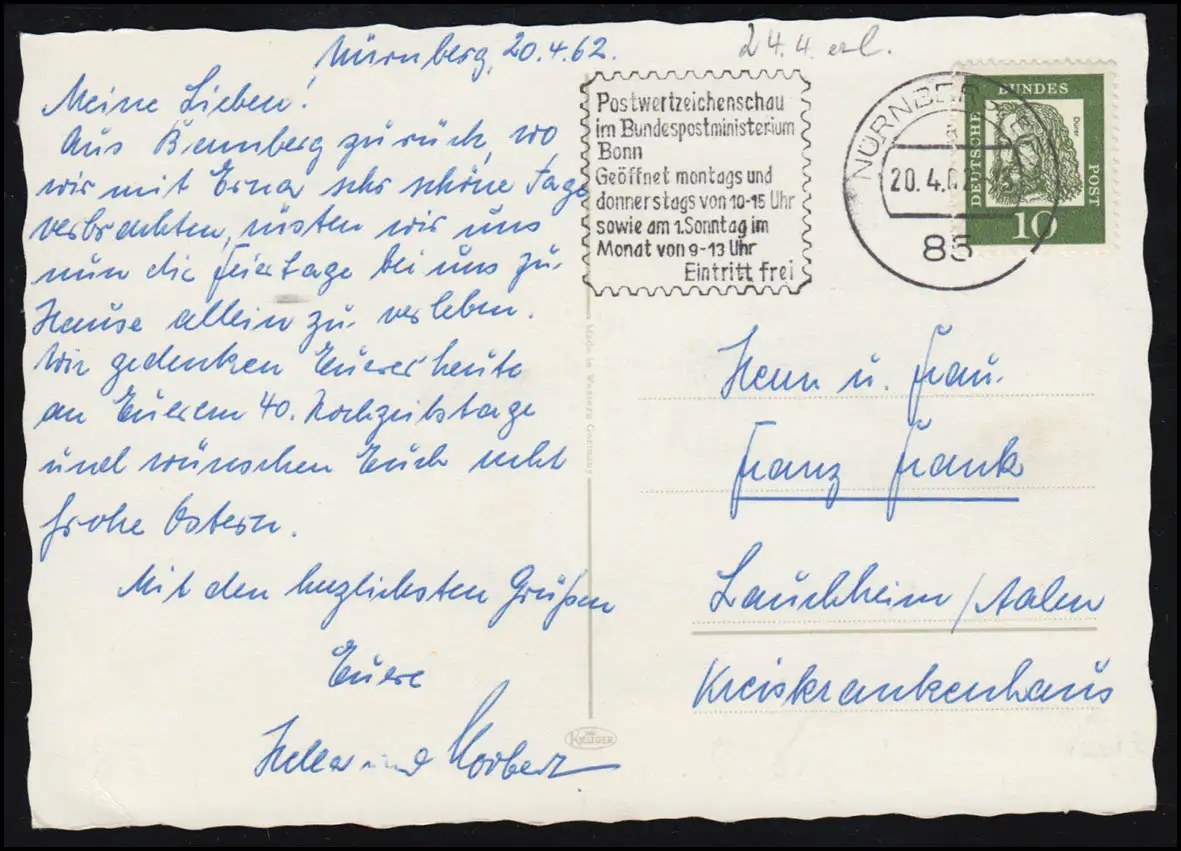 Nürnberg, 20.4.62.
24.4. erl.
Meine Lieben!
Aus Bamberg zurück, wo
wir mit Erna sehr schöne Tage
verbrachten, rüsten wir uns
nun die Feiertage bei uns zu-
Hause allein zu verleben.
Wir gedenken Euerer heute
an Euerem 40. Hochzeitstage
und wünschen Euch recht
frohe Ostern.
Mit den herzlichsten Grüßen
Euere
und Norbert
Postwertzeichenschau
im Bundespostministerium
Bonn
Geöffnet montags und
donnerstags von 10-15 Uhr
sowie am 1. Sonntag im
Monat von 9-13 Uhr
Eintritt frei
NÜRNBERG
20.4.62
85
DEUTSCHE BUNDES POST
Dürer
10
Made in Western Germany
Herrn u. Frau.
Franz Frank
Lauchheim/Aalen
Kreiskrankenhaus
KRÜGER